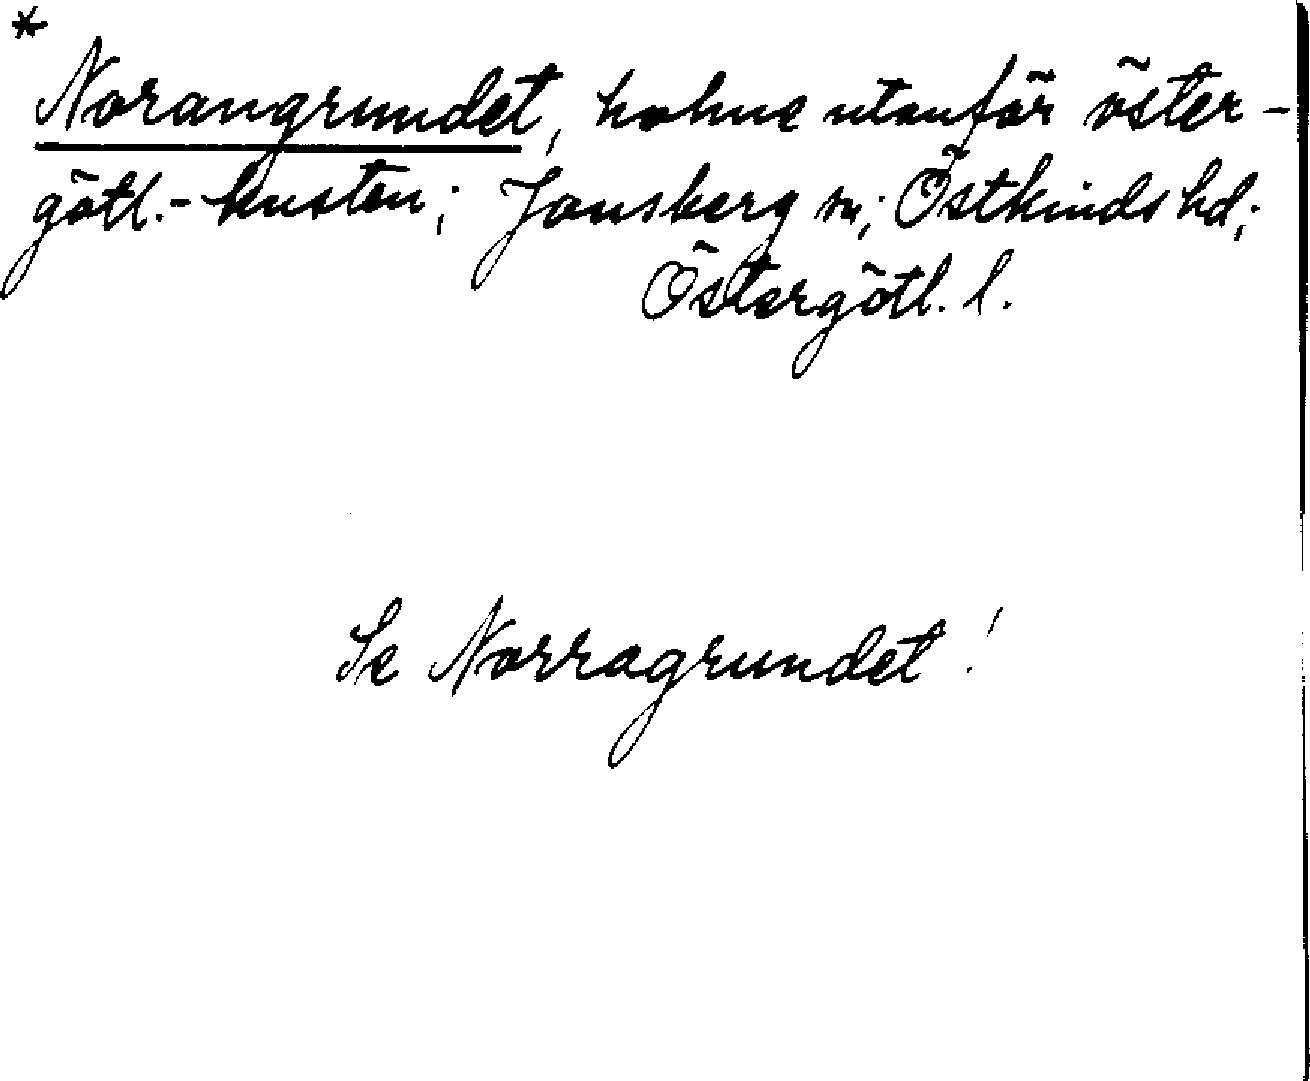 *
Norangrundet, holme utanför öster-
götl.-kusten; Jonsberg sn; Östkinds hd;
Östergötl. l.
Se Norragrundet!